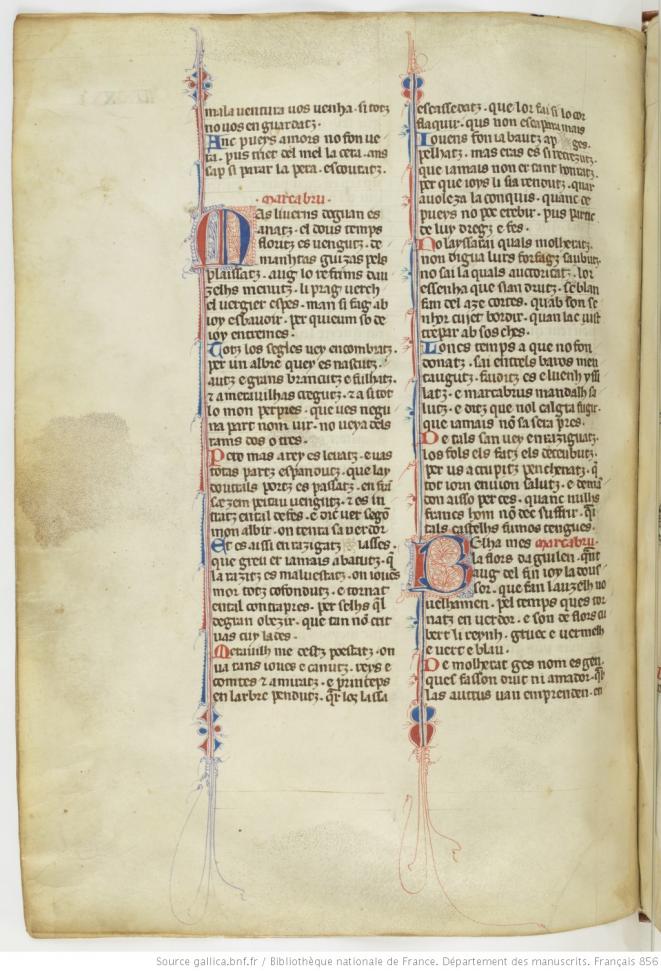 mala ventura uos uenha · si totz
no uos en guardatz ·
Anc puers amors no fon ue
ra · pus triet del mel la cera · ans
sap si parar la pera · escoutatz ·
marcabru ·
Mas liuerns deguan es
anatz · el dous temps
floritz es uengutz · de
manhtas guizas pels
plaissatz · aug lo refrims dau
zelhs menutz · li prag uerth
el uergier espes · man si fag ab
ioy esbaoir · per quieu m so de
ioy entremes ·
Totz los segles uey encombratz ·
per un albre quey es nascutz ·
autz e grans brancutz e fulhatz ·
et a merauilhas cregutz · et a si tot
lo mon perpres · que ues negu
na part nom uir · no ueya dels
rams dos o tres ·
Pero mas a rey es leuatz · e uas
totas partz espandutz · que lay
doutrals portz es passatz · en fra
sa e en peitau uengutz ·
mon albir · on tenra sa uerdor
Et es aissi enrazigatz
que greu er iamais abatutz · q̃
la razitz es maluestatz · on ioues
mor totz cofondutz · e tornat
en tal contrapres · per selhs q̃l
degran obezir · que tan nõ crit
uas cuy lades ·
Merauilh me destz poestatz · on
ua tans ioues e canutz · reys e
comtes et amiratz · e princeps
en larbre pendutz ·
escassedatz · que lor fai si lo cor
flaquir · que non escapara mais
Iouens fon ia bautz ap ges ·
pelhatz · mas eras es si recrezutz ·
que iamais non er tant hontatz ·
per que ioys li sia rendutz · quar
auoleza la conquis · quanc de
pueys no poc erebir · pus partic
de luy dregz e fes ·
No layssarai quals molheratz ·
non digua lurs forfagz saubutz
no sai la quals auctoritatz · lor
essenha que sian drutz · seblan
fan del aze cortes · quab son se
nhor cujet bordir · quan lac uist
trepar ab sos ches ·
Loncs temps a que no fon
donatz · sai entrels baros men
taugutz ·
latz · e marcabrus mandalh sa
lutz · e ditz que nol calgra fugir ·
que iamais nõ sa sera pres ·
De tals san uey enrazigatz ·
los fols els fatz els decebutz ·
per us acrupitz penchenatz · q̃
tot iorn enuion salutz · e demã
don aisso per ces · quanc nulhs
francs hom nõ dec suffrir · qi
tals castelhs fumos tengues ·
Belha mes marcabru ·
la flors daguilen · qñt
aug del fin ioy la dous
sor · que fan lauzelh no
uelhamen · pel temps ques tor
natz en uerdor · e son de flors cu
bert li reynh · gruec e uermelh
e uert e blau ·
De molherat ges nom es gen ·
ques fasson drut ni amador ·
las autrus uan emprenden · en
Source gallica.bnf.fr / Bibliothèque nationale de France. Département des manuscrits. Français 856